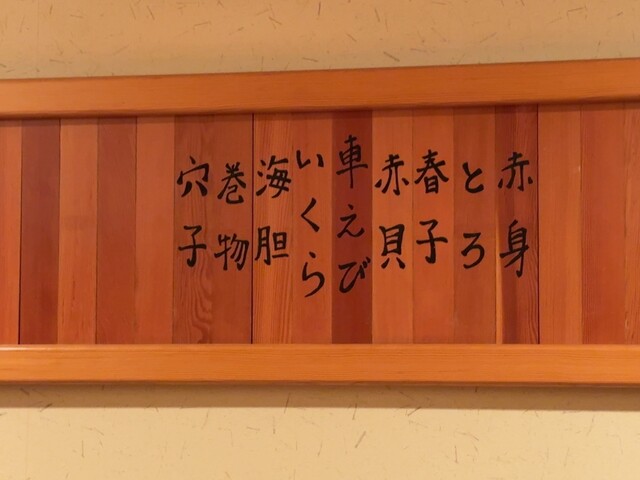 赤身
とろ
春子
赤貝
車えび
いくら
海胆
巻物
穴子